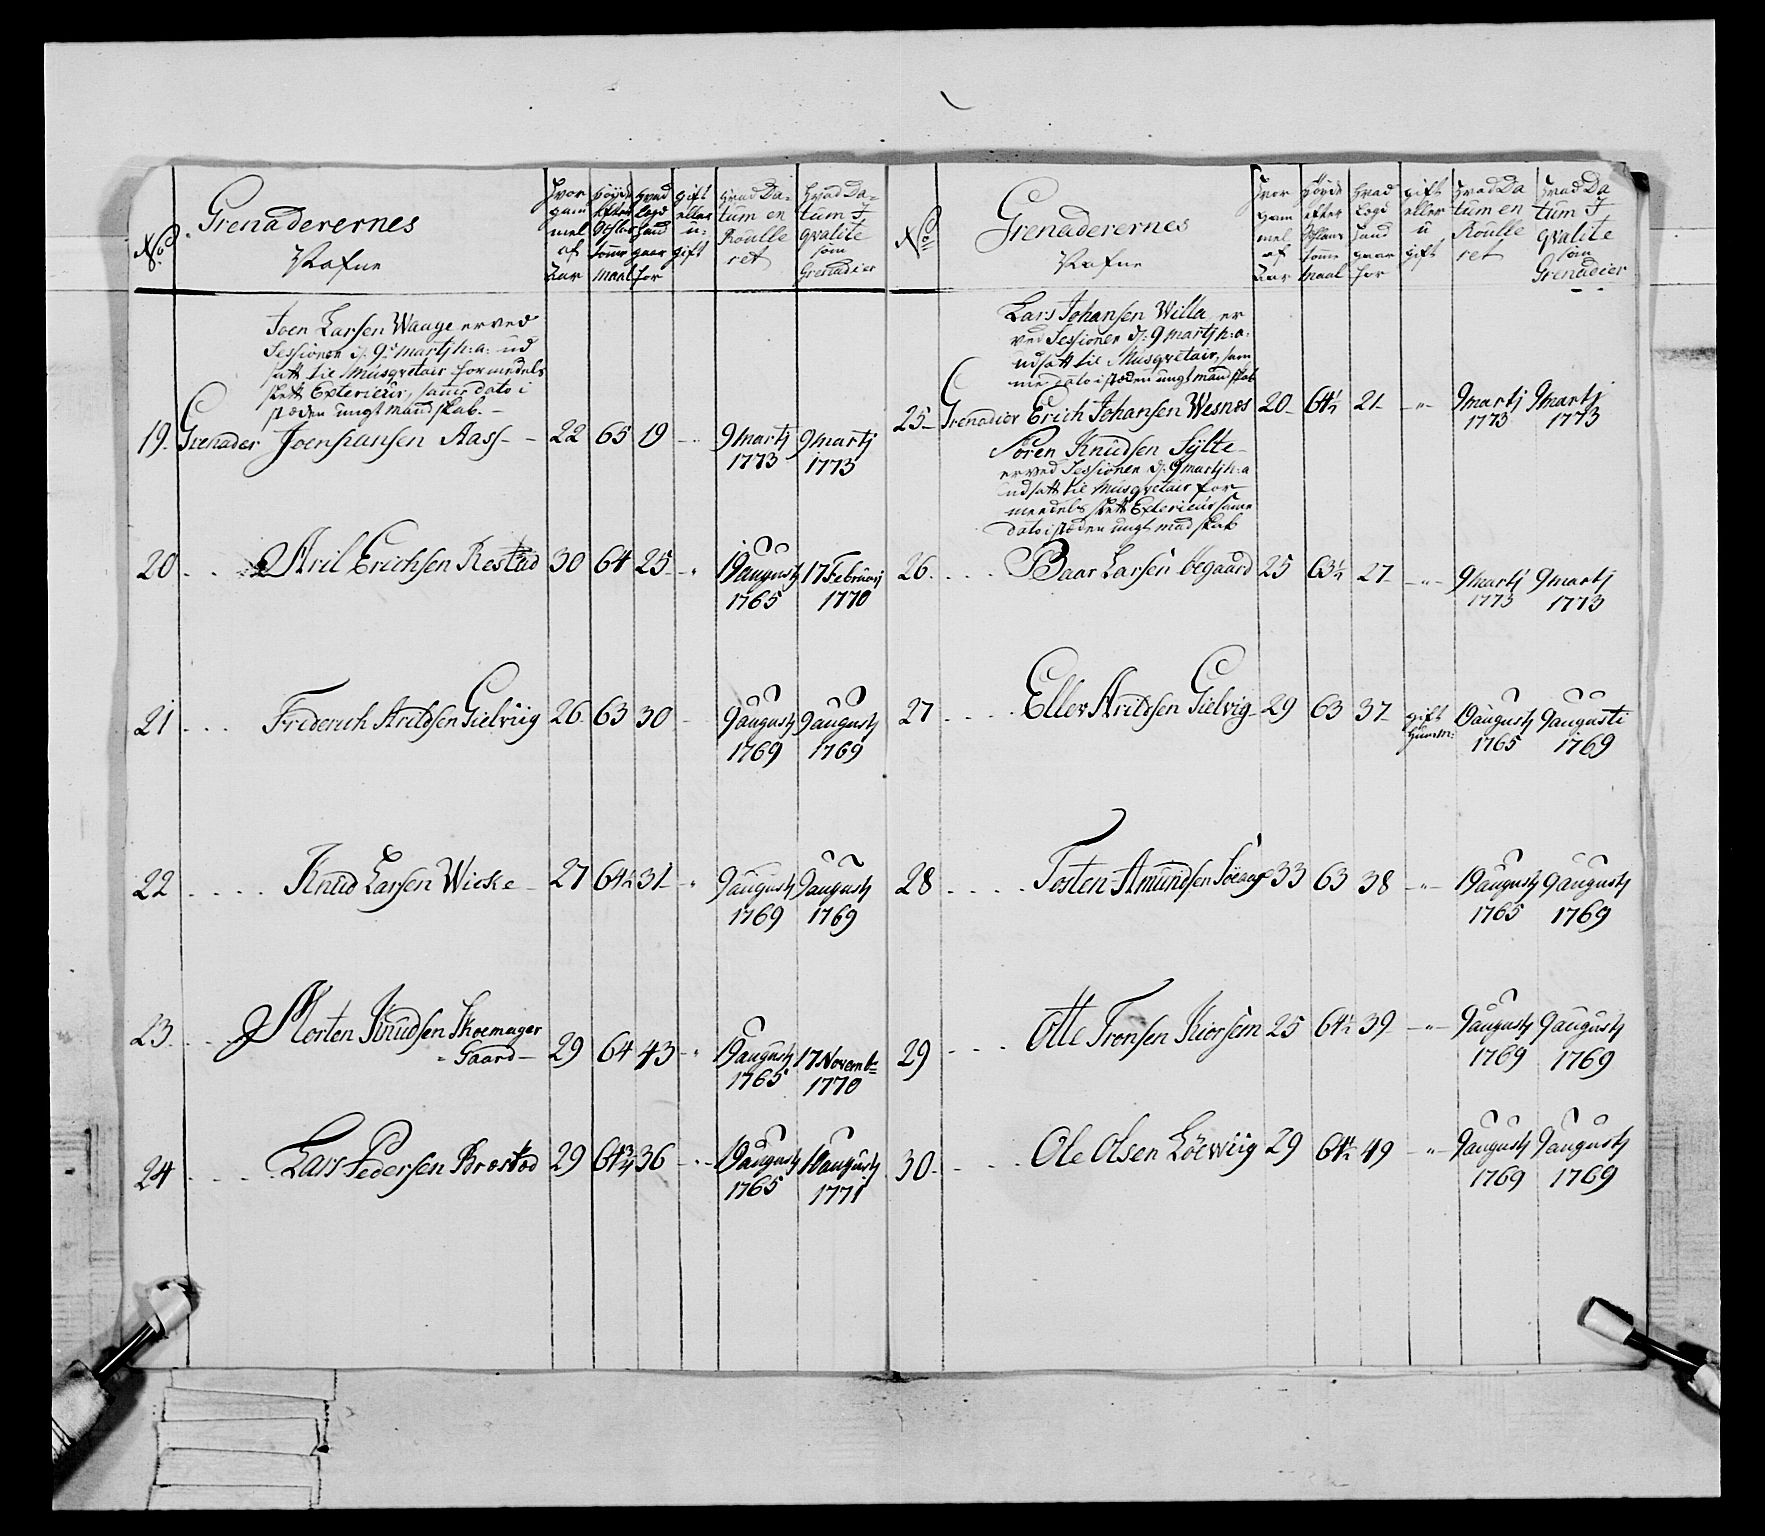 No
Grenaderernes
Nafne
Hvor gammel af Aar
Høyde efter Sjellans tomme maal
Hvad Legd hand gaar for
gift eller u: gift
Hvad Da-
tum en
Roulle
ret
Hvad Da-
tum I
qvalite
som
Grenadier
Joen Larsen Waage er ved
Sessionen d: 9de martj h: a: ud
satt til Musqvetair formedelst
slett Exterieur, samme dato i
stæden ungt mandskab. -
19. Grenader Joen Hansen Aass - - 22 65 19 - " - 9 martj 1773 9 martj 1773
20 . . . Aril Erichsen Restad 30 64 25 - " 19 augustj 1765 17 Februarj 1770
21 . . . Friderich Arildsen Gielviig 26 63 30 - 9 augustj 1769 9 augustj 1769
22 . . . . Knud Larsen Wicke - 27 64½ 31 - " 9 augustj 1769 9 augustj 1769
23. . . Morten Knudsen Skoemager
- Gaard - 29 64 43 - " 19 augustj 1765 17 Novembr 1770
24 . . . . Lars Pedersen Brøstad 29 64¾ 36 - " - 19 augustj 1765 10 augustj 1771
No
Grenaderernes
Nafne
Hvor gam mel af Aar
Høyde efter Sjellans tomme maal
Hvad Legd hand gaar for
gift eller u gift
Hvad Da
tum en
Roulle
ret
Hvad Da
tum I
qvalite
som
Grenadier
Lars Johansen Willa, er
ved Sessionen d: 9 martj h: a:
udsatt til Musqvetair, sam
me dato i stæden ungt mandskab
25 - Grenadier Erich Johansen Wesnes 20 - 64½ 21 - - " - 9 martj 1773 9 martj 1773
Søren Knudsen Sylte -
er ved Sessionen d: 9 martj h: a
udsatt til Musqvetair for-
mendelst slett Exterieur samme
dato i stæden ungt mandskab
26. . . . Baar Larsen Øegaard 25 63½ 27 - - " - 9 martj 1773 9 martj 1773
27 . . . . Eller Arildsen Gielvig - 29 63 37 - gift 19 augustj 1765 9 augusti 1769
28 . . . . Tosten Amundsen 33 63 38 - " - 19 augustj 1765 9 augustj 1769
29 . . . Otte Tronsen Kiorsem 25 64½ 39 - " - 9 augustj 1769 9 augustj 1769
30 - . . . Ole Olsen Løeviig 29 64½ 49 - " 9 augustj 1769 9 augustj 1769